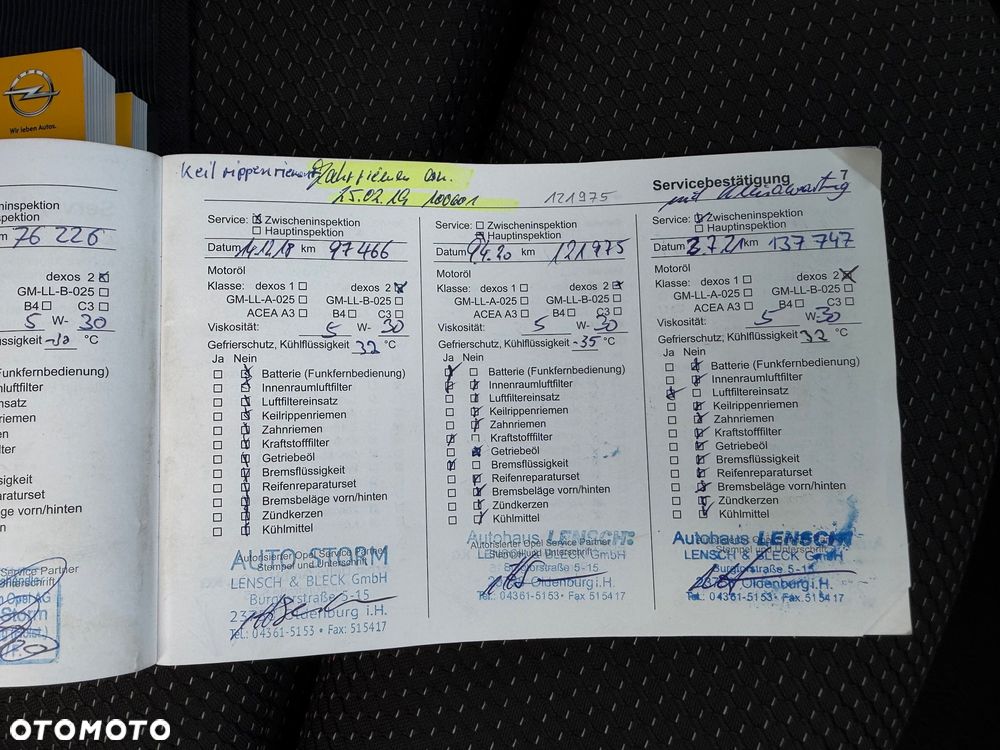 Wir leben Autos.
Keilrippenriemen Zahnriemen
25.02.19 100001
121975
Servicebestätigung 7
mit Klimawartung
heninspektion
spektion
m 76 226
dexos 2
GM-LL-B-025
B4 C3
5 W- 30
flüssigkeit °C
Funkfernbedienung)
mluftfilter
nsatz
iemen
en
lter
sigkeit
araturset
ge vorn/hinten
n
Service Partner
Opel AG
Storm
Service: Zwischeninspektion
Hauptinspektion
Datum 14.12.18 km 97466
Motoröl
Klasse: dexos 1 dexos 2
GM-LL-A-025 GM-LL-B-025
ACEA A3 B4 C3
Viskosität: 5 W- 30
Gefrierschutz, Kühlflüssigkeit 32 °C
Ja Nein
Batterie (Funkfernbedienung)
Innenraumluftfilter
Luftfiltereinsatz
Keilrippenriemen
Zahnriemen
Kraftstofffilter
Getriebeöl
Bremsflüssigkeit
Reifenreparaturset
Bremsbeläge vorn/hinten
Zündkerzen
Kühlmittel
Autorisierter Opel Service Partner
Stempel und Unterschrift
AUTO STORM
LENSCH & BLECK GmbH
Burgtorstraße 5-15
Oldenburg i.H.
Tel.: 04361-5153 • Fax: 515417
Service: Zwischeninspektion
Hauptinspektion
Datum 9.4.20 km 121975
Motoröl
Klasse: dexos 1 dexos 2
GM-LL-A-025 GM-LL-B-025
ACEA A3 B4 C3
Viskosität: 5 W- 30
Gefrierschutz, Kühlflüssigkeit -35 °C
Ja Nein
Batterie (Funkfernbedienung)
Innenraumluftfilter
Luftfiltereinsatz
Keilrippenriemen
Zahnriemen
Kraftstofffilter
Getriebeöl
Bremsflüssigkeit
Reifenreparaturset
Bremsbeläge vorn/hinten
Zündkerzen
Kühlmittel
Autorisierter Opel Service Partner
Stempel und Unterschrift
Autohaus LENSCH
LENSCH & BLECK GmbH
Burgtorstraße 5-15
Oldenburg i.H.
Tel.: 04361-5153 • Fax: 515417
Service: Zwischeninspektion
Hauptinspektion
Datum 3.7.21 km 137 747
Motoröl
Klasse: dexos 1 dexos 2
GM-LL-A-025 GM-LL-B-025
ACEA A3 B4 C3
Viskosität: 5 W- 30
Gefrierschutz, Kühlflüssigkeit 32 °C
Ja Nein
Batterie (Funkfernbedienung)
Innenraumluftfilter
Luftfiltereinsatz
Keilrippenriemen
Zahnriemen
Kraftstofffilter
Getriebeöl
Bremsflüssigkeit
Reifenreparaturset
Bremsbeläge vorn/hinten
Zündkerzen
Kühlmittel
Autorisierter Opel Service Partner
Stempel und Unterschrift
Autohaus LENSCH
LENSCH & BLECK GmbH
Burgtorstraße 5-15
Oldenburg i.H.
Tel.: 04361-5153 • Fax: 515417
OTOMOTO